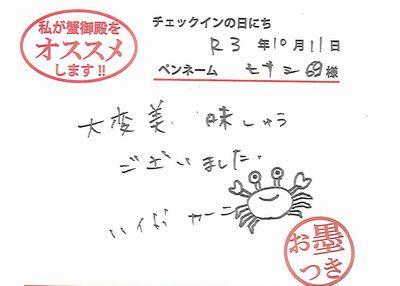 私が蟹御殿を
オススメ
します!!
チェックインの日にち
R3 年10月11日
ペンネーム ヒサシ69様
大変美味しゅう
ございました。
お墨
つき